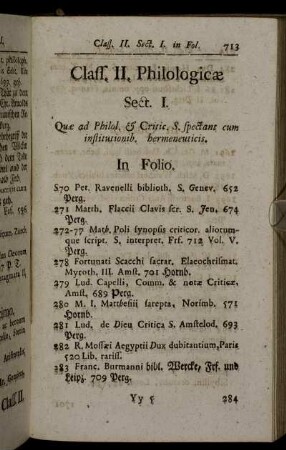 Class. II. Sect. I. in Fol. 713
Class. II. Philologicæ
Sect. I.
Quæ ad Philol. & Critic. S. spectant cum
institutionib. hermeneuticis.
In Folio.
270 Pet. Ravenelli biblioth. S. Genev. 652
Perg.
271 Matth. Flaccii Clavis scr. S. Jen. 674
Perg.
272-77 Math. Poli synopsis criticor. aliorum-
que script. S. interpret. Frf. 712 Vol. V.
Perg.
278 Fortunati Scacchi sacrar. Elaeochrismat.
Myroth. III. Amst. 701 Hornb.
279 Lud. Capelli, Comm. & notæ Criticæ.
Amst. 689 Perg.
280 M. I. Matthesii sarepta, Norimb. 571
Hornb.
281 Lud. de Dieu Critica S. Amstelod. 693
Perg.
282 R. Mossæi Aegyptii Dux dubitantium, Paris
520 Lib. rariss.
283 Franc. Burmanni bibl. Wercke, Frf. und
Leipz. 709 Perg.
Yy 5
284